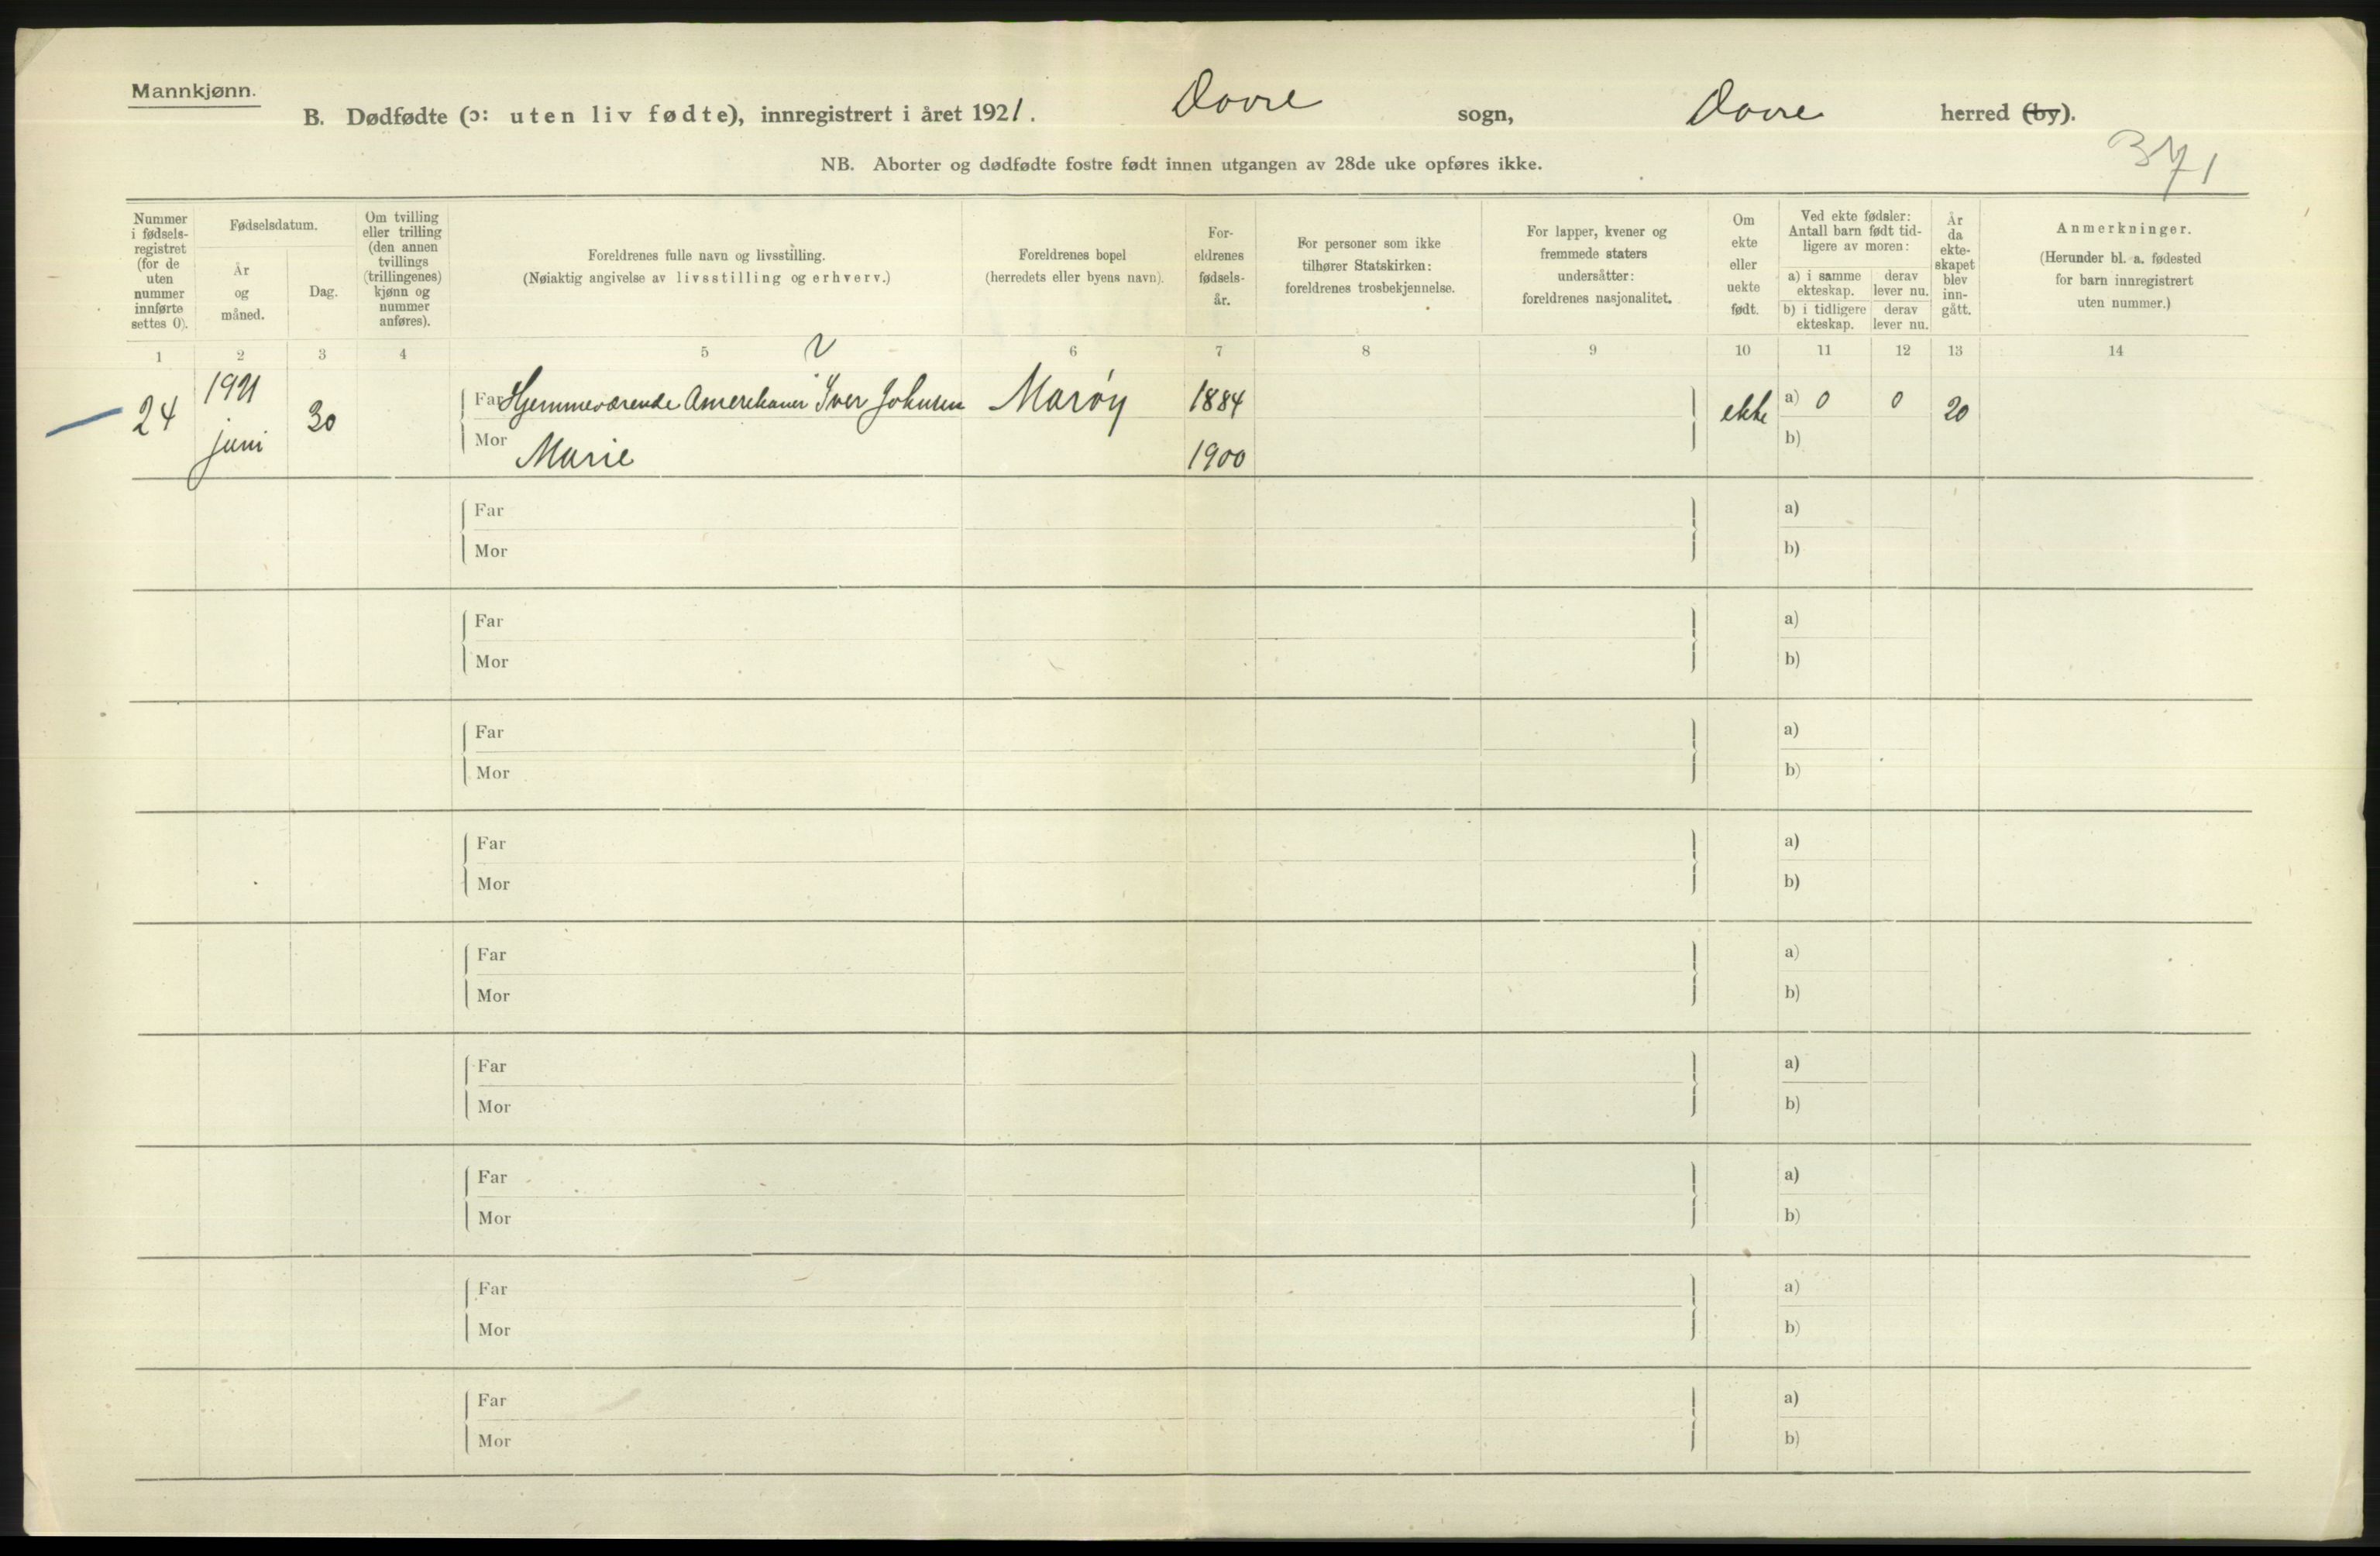 Mannkjønn.
B. Dødfødte (ɔ: uten liv fødte), innregistrert i året 1921. Dovre sogn, Dovre herred (by).
371
NB. Aborter og dødfødte fostre født innen utgangen av 28de uke opføres ikke.
Nummer i fødsels-registret (for de uten nummer innførte settes 0).
Fødselsdatum.
År og måned.
Dag.
Om tvilling eller trilling (den annen tvillings (trillingenes) kjønn og nummer anføres).
Foreldrenes fulle navn og livsstilling.
(Nøiaktig angivelse av livsstilling og erhverv.)
Foreldrenes bopel
(herredets eller byens navn).
For-eldrenes fødsels-år.
For personer som ikke tilhører Statskirken: foreldrenes trosbekjennelse.
For lapper, kvener og fremmede staters undersåtter: foreldrenes nasjonalitet.
Om ekte eller uekte født.
Ved ekte fødsler: Antall barn født tid-ligere av moren:
a) i samme ekteskap.
derav lever nu.
b) i tidligere ekteskap.
derav lever nu.
År da ekte-skapet blev inn-gått.
Anmerkninger.
(Herunder bl. a. fødested for barn innregistrert uten nummer.)
1 2 3 4 5 6 7 8 9 10 11 12 13 14
24 1921 juni 30 Far Hjemmeværende Amerikaner Iver Johnsen Marøy 1884 ekte a) 0 0 20
Mor Marie 1900 b)
Far a)
Mor b)
Far a)
Mor b)
Far a)
Mor b)
Far a)
Mor b)
Far a)
Mor b)
Far a)
Mor b)
Far a)
Mor b)
Far a)
Mor b)
Far a)
Mor b)